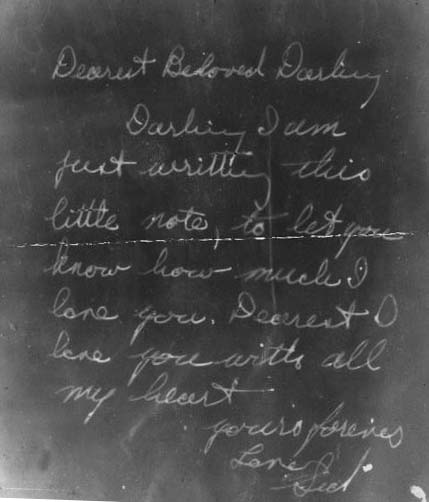 Dearest Beloved Darling
Darling I am
just writting this
little note, to let you
know how much I
love you. Dearest I
love you with all
my heart
yours forever
Love